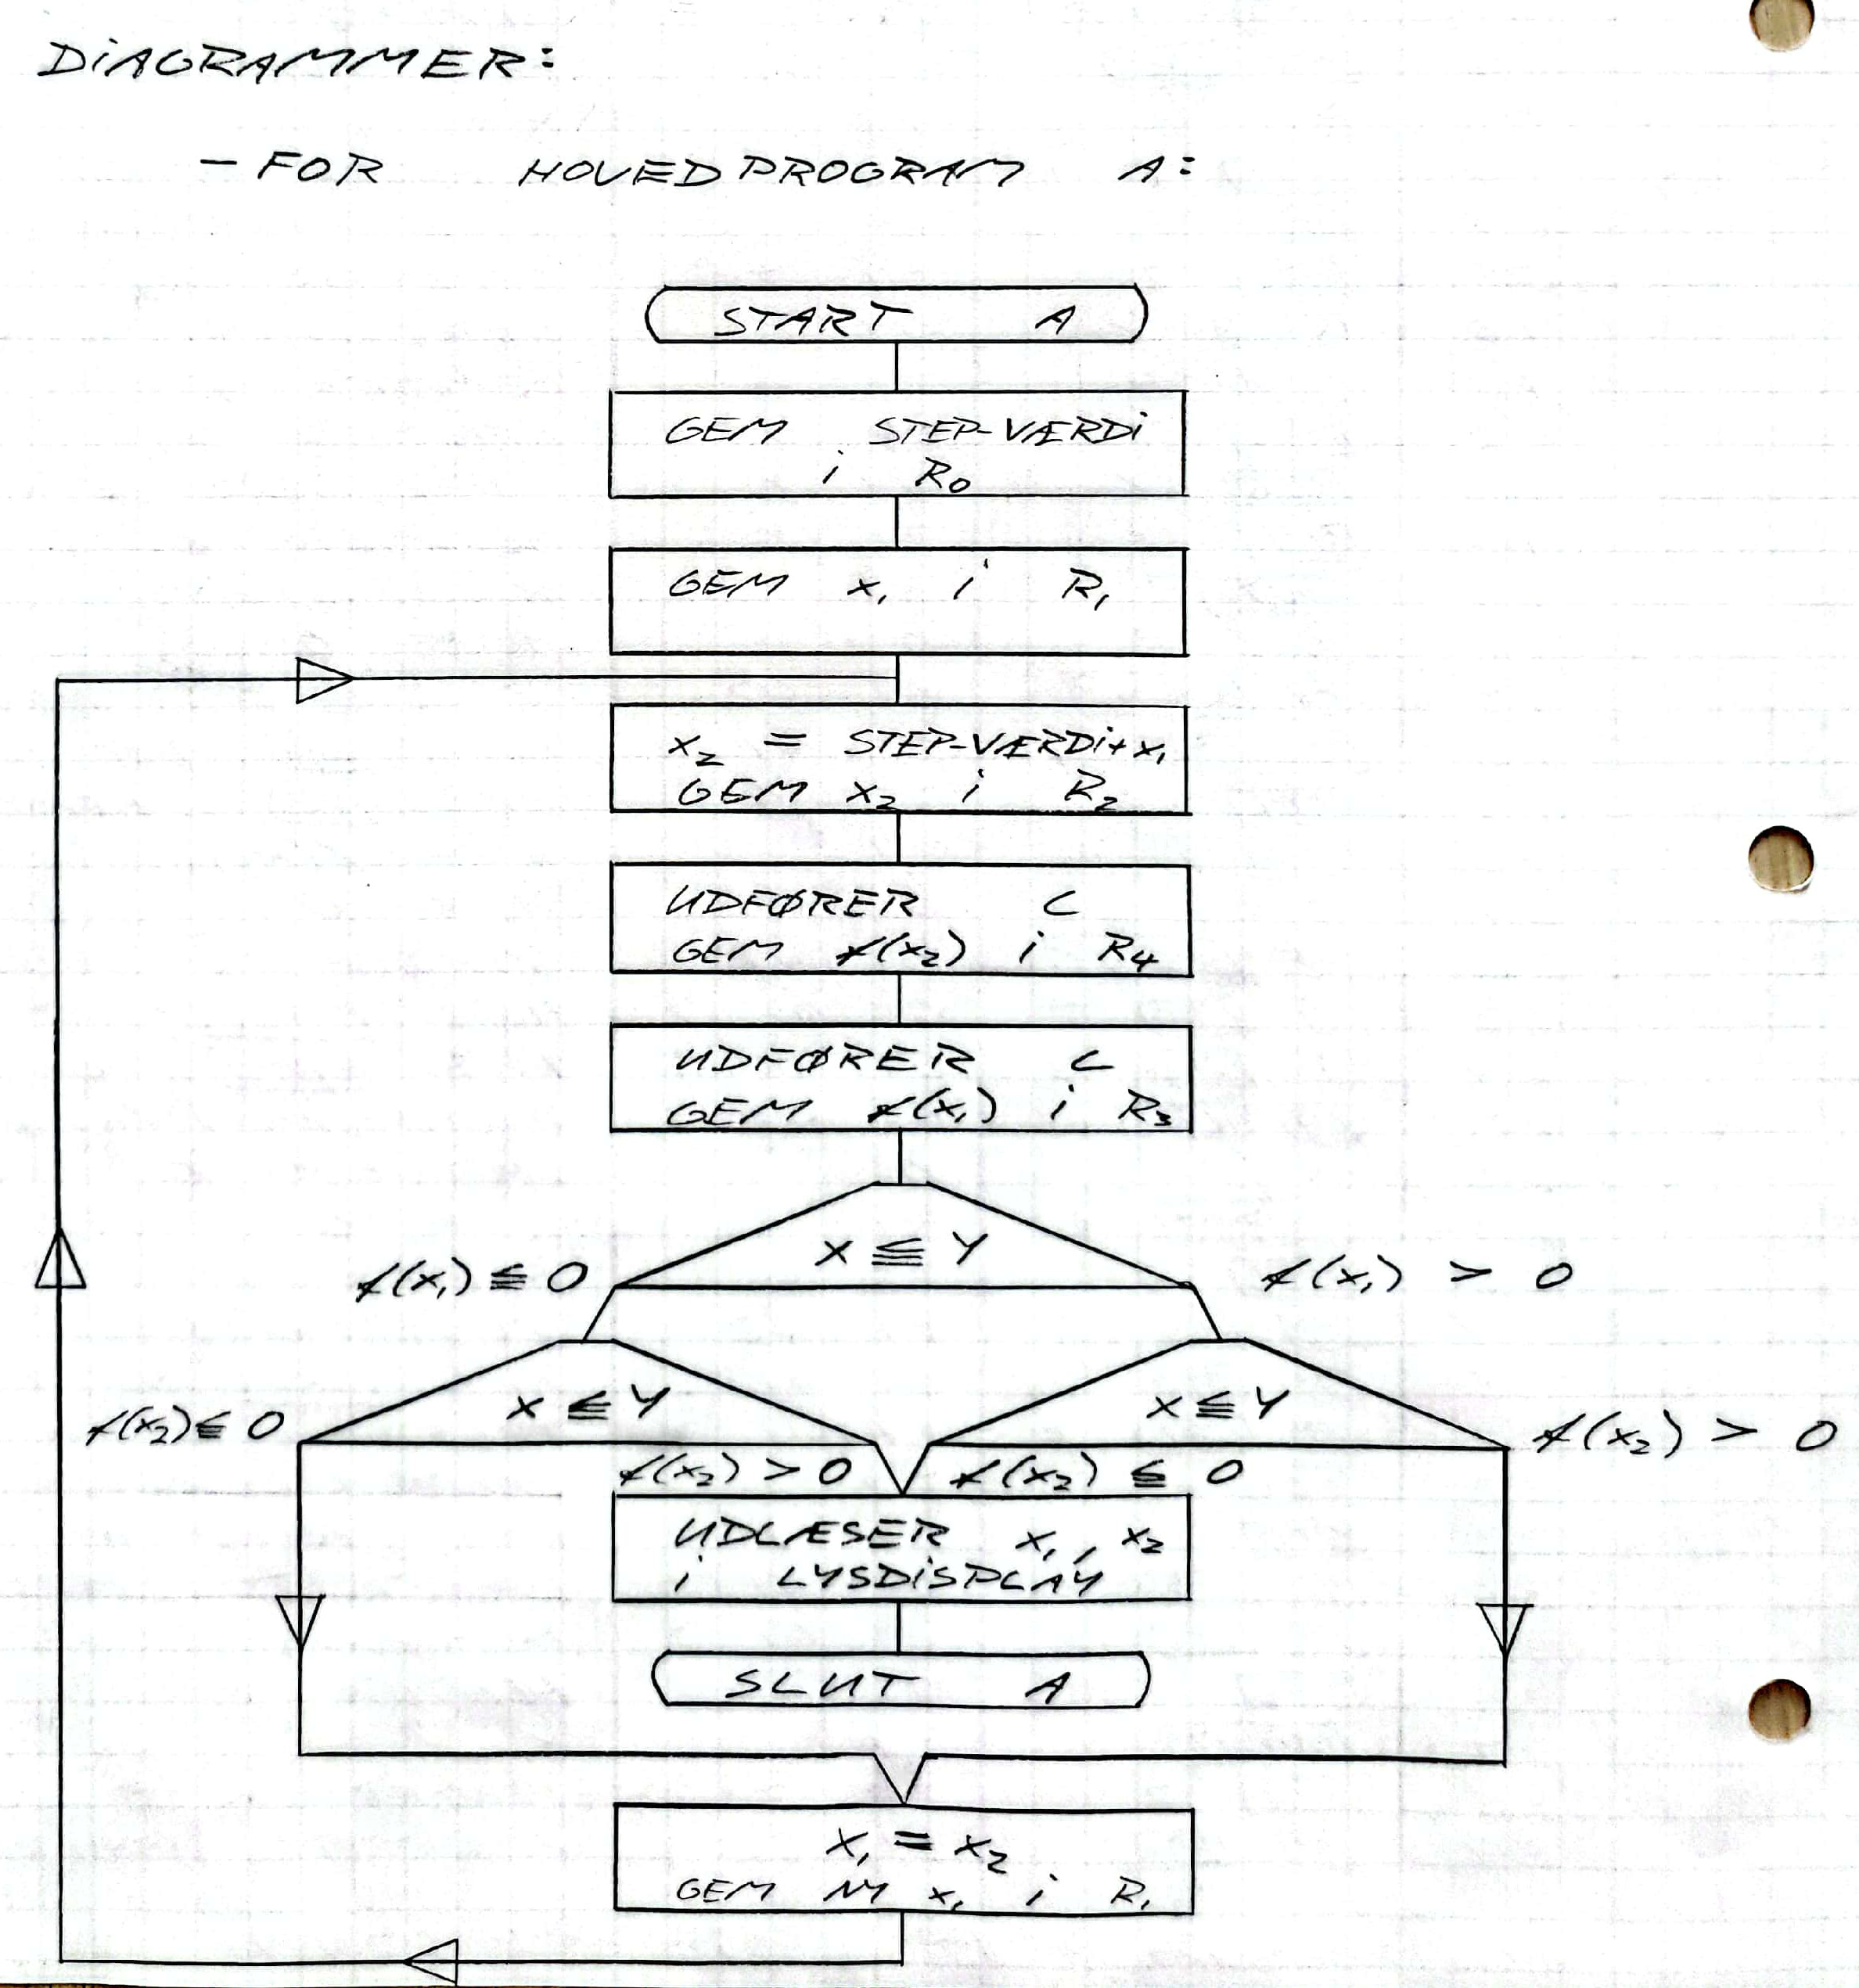 DiAGRAMMER:
- FOR HOVEDPROGRAM A:
START A
GEM STEP-VÆRDi
i R₀
GEM x₁ i R₁
x₂ = STEP-VÆRDi+x₁
GEM x₂ i R₂
UDFØRER C
GEM f(x₂) i R₄
UDFØRER C
GEM f(x₁) i R₃
X ≦ Y
f(x₁) ≦ 0
f(x₁) > 0
X ≦ Y
X ≦ Y
f(x₂) ≦ 0
f(x₂) > 0
f(x₂) > 0
f(x₂) ≦ 0
UDLÆSER x₁, x₂
i LYSDiSPLAY
SLUT A
x₁ = x₂
GEM NY x₁ i R₁